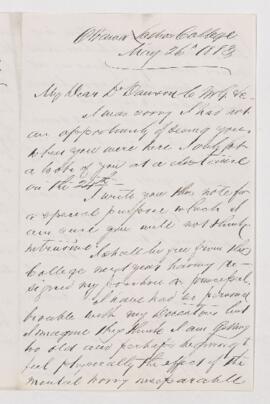 Ottawa Ladies College
May 26th 1883
My Dear Dr Dawson C M G &c
I was sorry I had not
an opportunity of seeing you
when you were here I only got
a look of you at a distance
on the 24th —
I write you this note for
a special purpose which I
am sure you will not think
intrusive I shall be free from this
College next year having re-
signed my position as principal
I have had no personal
trouble with my Directors but
I imagine they think I am getting
too old and perhaps beginning to
feel physically the effect of the
mental worry inseparable